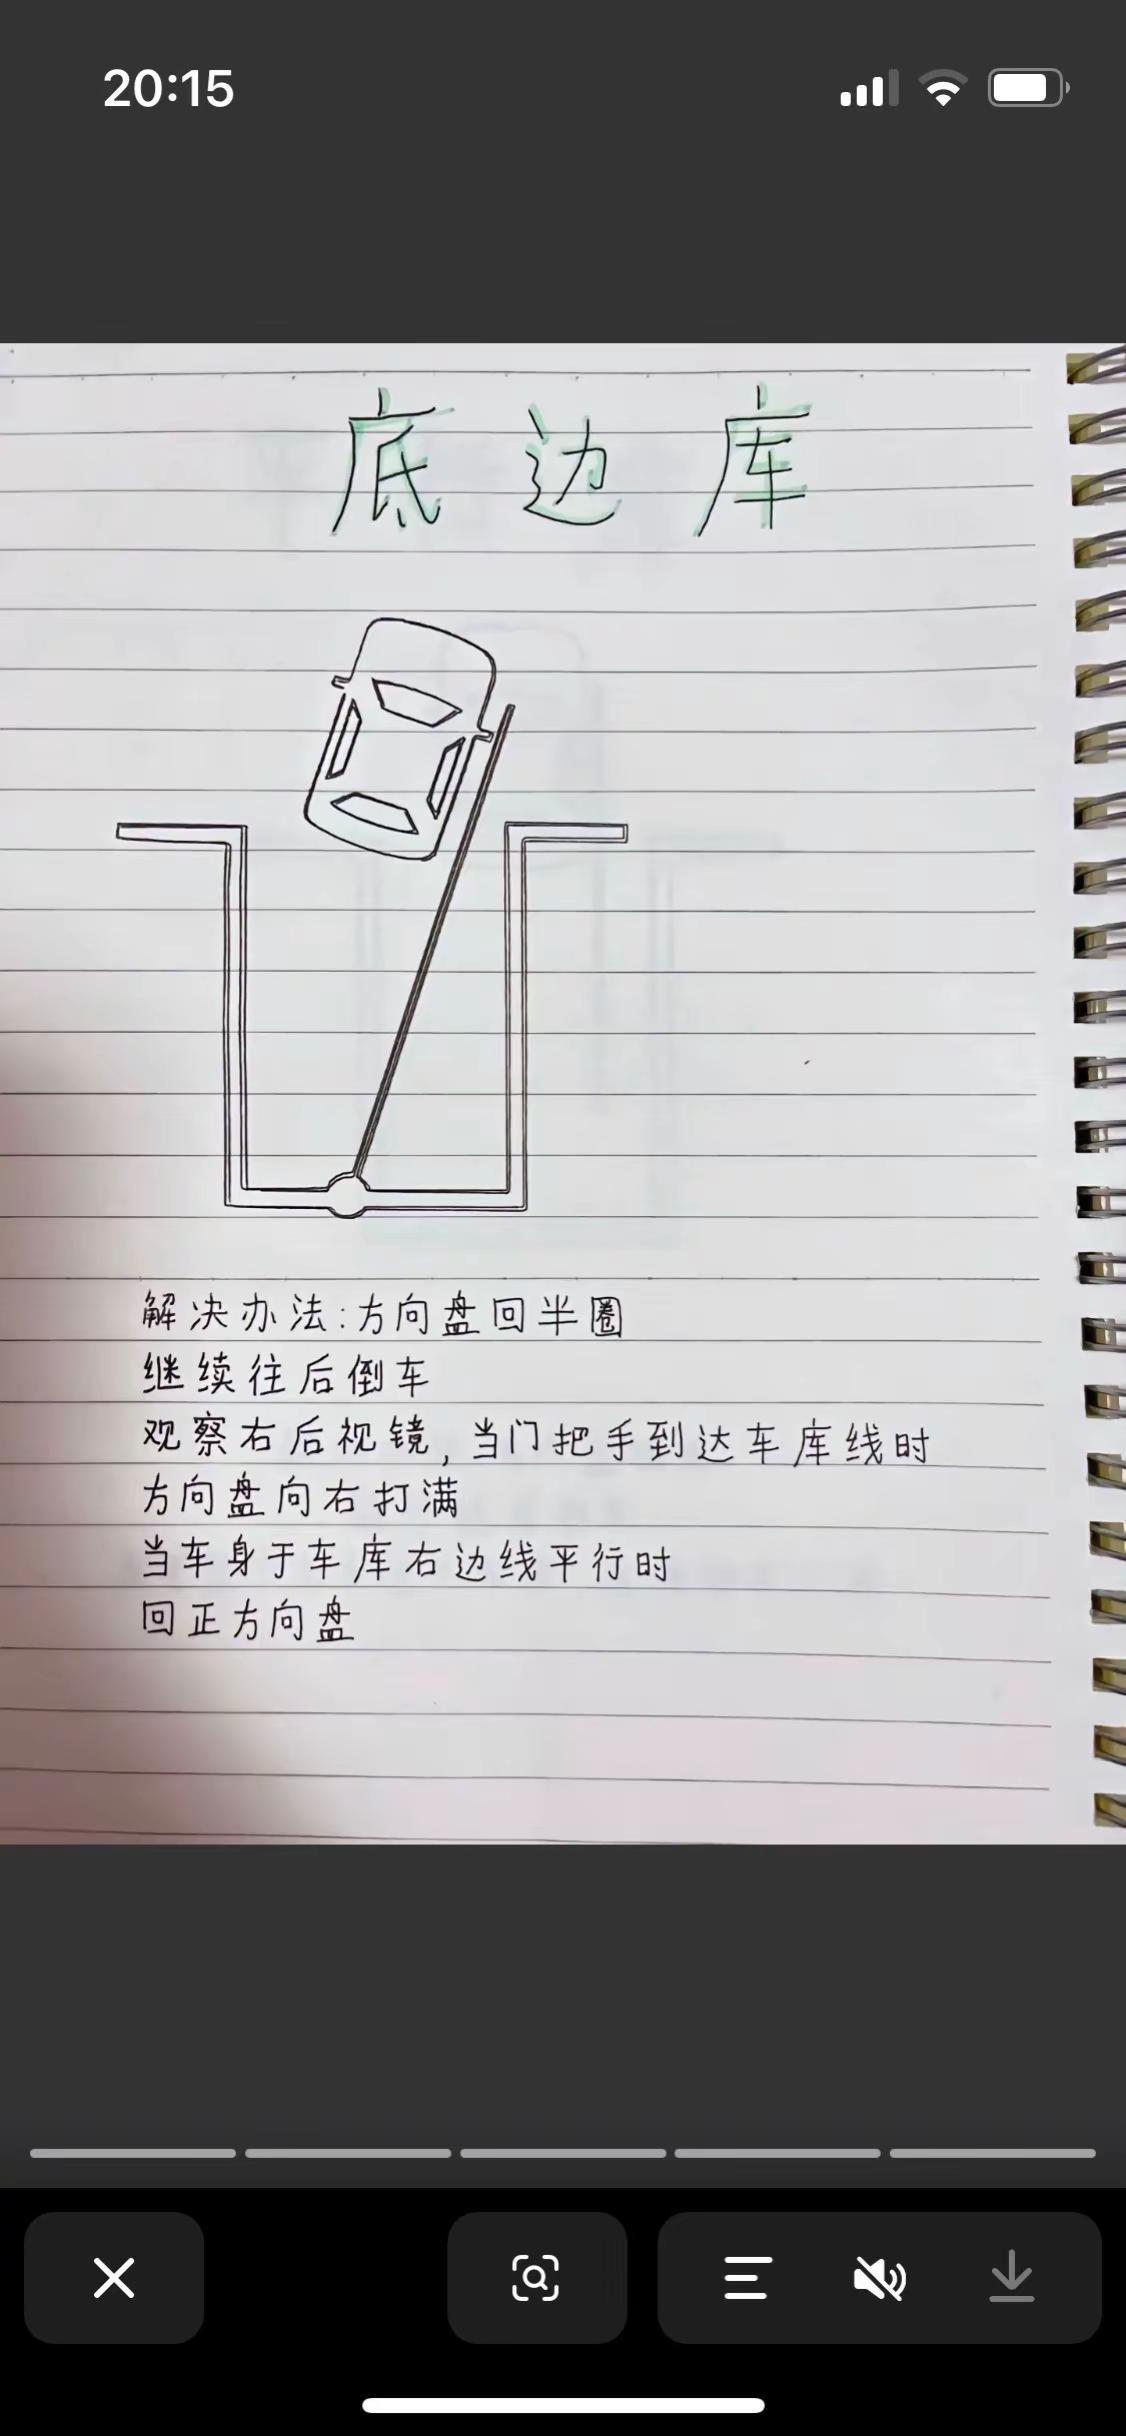 20:15
底边库
解决办法:方向盘回半圈
继续往后倒车
观察右后视镜,当门把手到达车库线时
方向盘向右打满
当车身于车库右边线平行时
回正方向盘